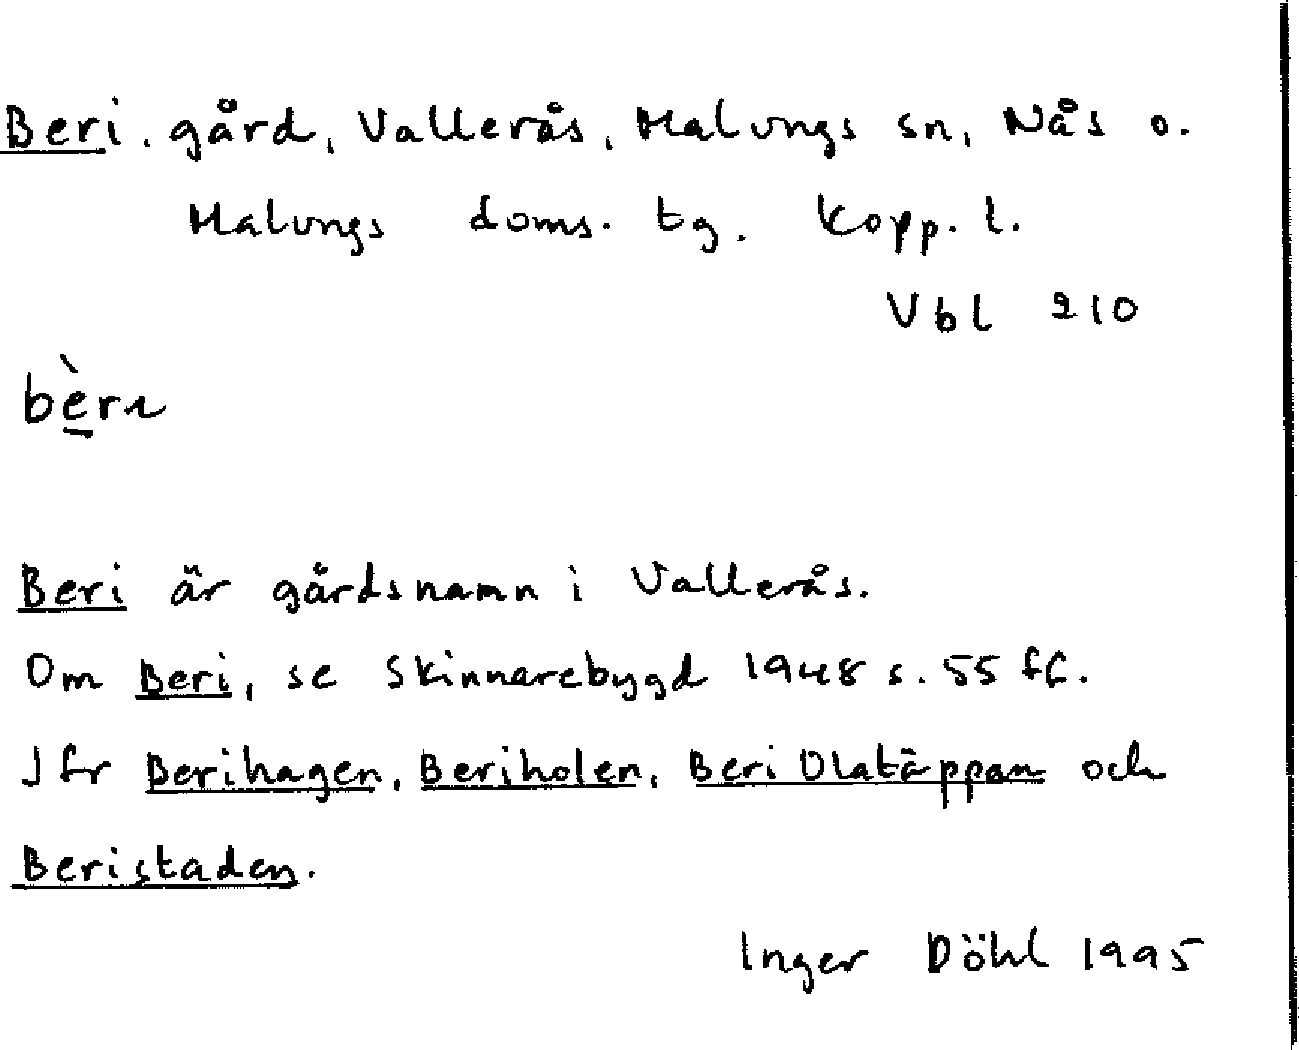 Beri, gård, Vallerås, Malungs sn, Nås o.
Malungs doms. tg. Kopp. l.
Vbl 210
bèrı
Beri är gårdsnamn i Vallerås.
Om Beri, se Skinnarebygd 1948 s. 55 ff.
Jfr Berihagen, Beriholen, Beri Olatäppan och
Beristaden.
Inger Döhl 1995